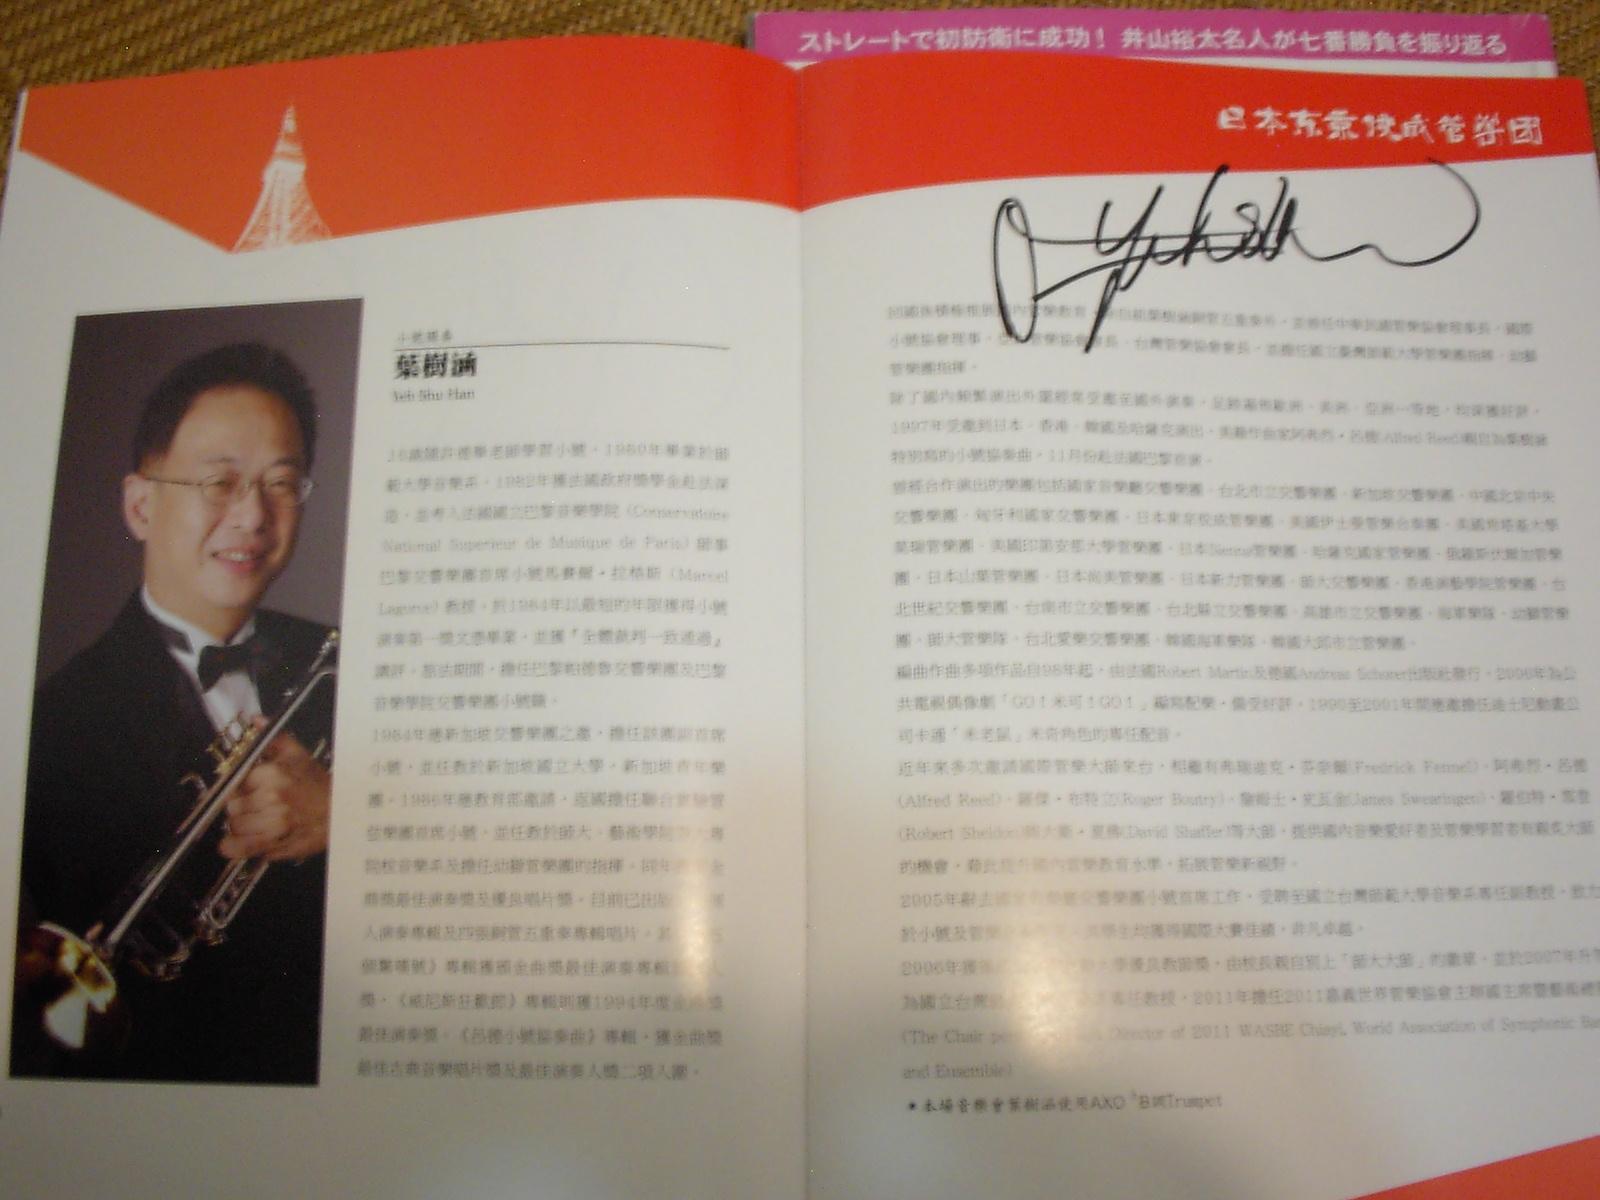 ストレートで初防衛に成功！ 井山裕太名人が七番勝負を振り返る
日本东京佼成管樂团
小號獨奏
葉樹涵
Yeh Shu Han
16歲隨許德舉老師學習小號，1980年畢業於師
範大學音樂系，1982年獲法國政府獎學金赴法深
造，並考入法國國立巴黎音樂學院（Conservatoire
National Superieur de Musique de Paris）師事
巴黎交響樂團首席小號馬賽爾・拉格斯（Marcel
Lagorce）教授，於1984年以最短的年限獲得小號
演奏第一獎文憑畢業，並獲『全體裁判一致通過』
講評。旅法期間，擔任巴黎柏德魯交響樂團及巴黎
音樂學院交響樂團小號職。
1984年應新加坡交響樂團之邀，擔任該團副首席
小號，並任教於新加坡國立大學、新加坡青年樂
團。1986年應教育部邀請，返國擔任聯合實驗管
弦樂團首席小號，並任教於師大、藝術學院
院校音樂系及擔任幼獅管樂團的指揮。同年 金
鼎獎最佳演奏獎及優良唱片獎。目前已出版
人演奏專輯及四張銅管五重奏專輯唱片。其
個驚嘆號》專輯獲頒金曲獎最佳演奏專輯 人
獎，《威尼斯狂歡節》專輯則獲1994年度金 獎
最佳演奏獎。《呂德小號協奏曲》專輯，獲金曲獎
最佳古典音樂唱片獎及最佳演奏人獎二項入圍。
回國後積極推展 內管樂教育， 組葉樹涵銅管五重奏外，並擔任中華民國管樂協會理事長、國際
小號協會理事、 管樂協會 長、台灣管樂協會會長，並擔任國立臺灣師範大學管樂團指揮、幼獅
管樂團指揮。
除了國內頻繁演出外還經常受邀至國外演奏，足跡遍根歐洲、美洲、亞洲…等地，均深獲好評。
1997年受邀到日本、香港、韓國及哈薩克演出，美籍作曲家阿弗烈・呂德(Alfred Reed)親自為葉樹涵
特別寫的小號協奏曲，11月份赴法國巴黎首演。
曾經合作演出的樂團包括國家音樂廳交響樂團、台北市立交響樂團、新加坡交響樂團、中國北京中央
交響樂團、匈牙利國家交響樂團、日本東京佼成管樂團、美國伊士曼管樂合奏團、美國肯塔基大學
萊瑞管樂團、美國印第安那大學管樂團、日本Sienna管樂團、哈薩克國家管樂團、俄羅斯伏爾加管樂
團、日本山葉管樂團、日本尚美管樂團、日本新力管樂團、師大交響樂團、香港演藝學院管樂團、台
北世紀交響樂團、台南市立交響樂團、台北縣立交響樂團、高雄市立交響樂團、海軍樂隊、幼獅管樂
團、師大管樂隊、台北愛樂交響樂團、韓國海軍樂隊、韓國大邱市立管樂團。
編曲作曲多項作品自98年起，由法國Robert Martin及德國Andreas Schorer出版社發行，2006年為公
共電視偶像劇「GO！米可！GO！」編寫配樂，備受好評，1990至2001年間應邀擔任迪士尼動畫公
司卡通「米老鼠」米奇角色的專任配音。
近年來多次邀請國際管樂大師來台，相繼有弗瑞迪克・芬奈爾(Fredrick Fennel)、阿弗烈・呂德
(Alfred Reed)、羅傑・布特立(Roger Boutry)、詹姆士・史瓦金(James Swearingen)、羅伯特・雪登
(Robert Sheldon)與大衛・夏佛(David Shaffer)等大師，提供國內音樂愛好者及管樂學習者有親炙大師
的機會，藉此提升國內管樂教育水準，拓展管樂新視野。
2005年辭去國家 交響樂團小號首席工作，受聘至國立台灣師範大學音樂系專任副教授，致力
於小號及管樂 學生均獲得國際大賽佳績，非凡卓越。
2006年獲 大學優良教師獎，由校長親自別上「師大大師」的徽章，並於2007年升等
為國立台灣 專任教授，2011年擔任2011嘉義世界管樂協會主辦國主席暨藝術總
(The Chair per Director of 2011 WASBE Chiayi, World Association of Symphonic Ba
and Ensemble)
• 本場音樂會葉樹涵使用AXO ♭B調Trumpet